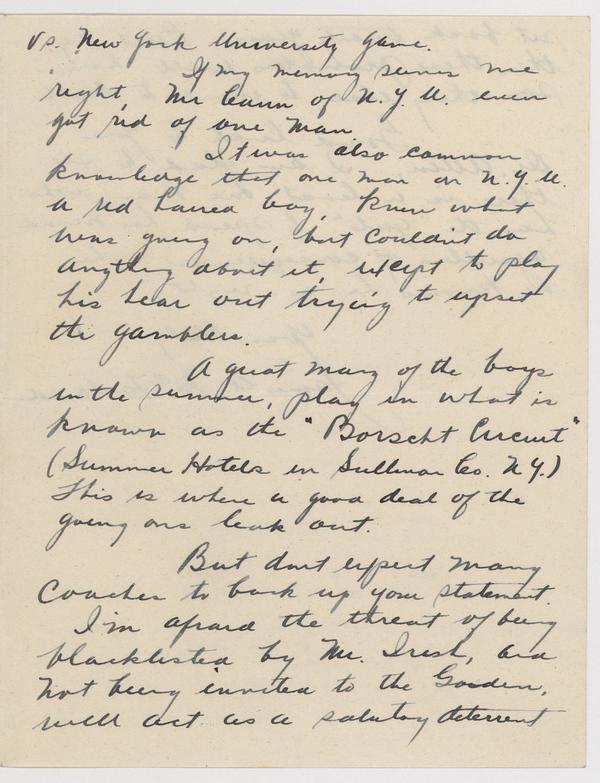 vs. New York University game.
If my memory serves me
right, Mr Cann of N.Y.U. even
got rid of one man
It was also common
knowledge that one man on N.Y.U.
a red haired boy, knew what
was going on, but couldn't do
anything about it, except to play
his hear out trying to upset
the gamblers.
A great many of the boys
in the summer, play in what is
known as the "Borscht Circuit"
(Summer Hotels in Sullivan Co. N.Y.)
This is where a good deal of the
going ons leak out.
But dont expect many
Coaches to back up your statement.
I'm afraid the threat of being
blacklisted by Mr. Irish, and
not being invited to the Garden,
will act as a salutary deterrent